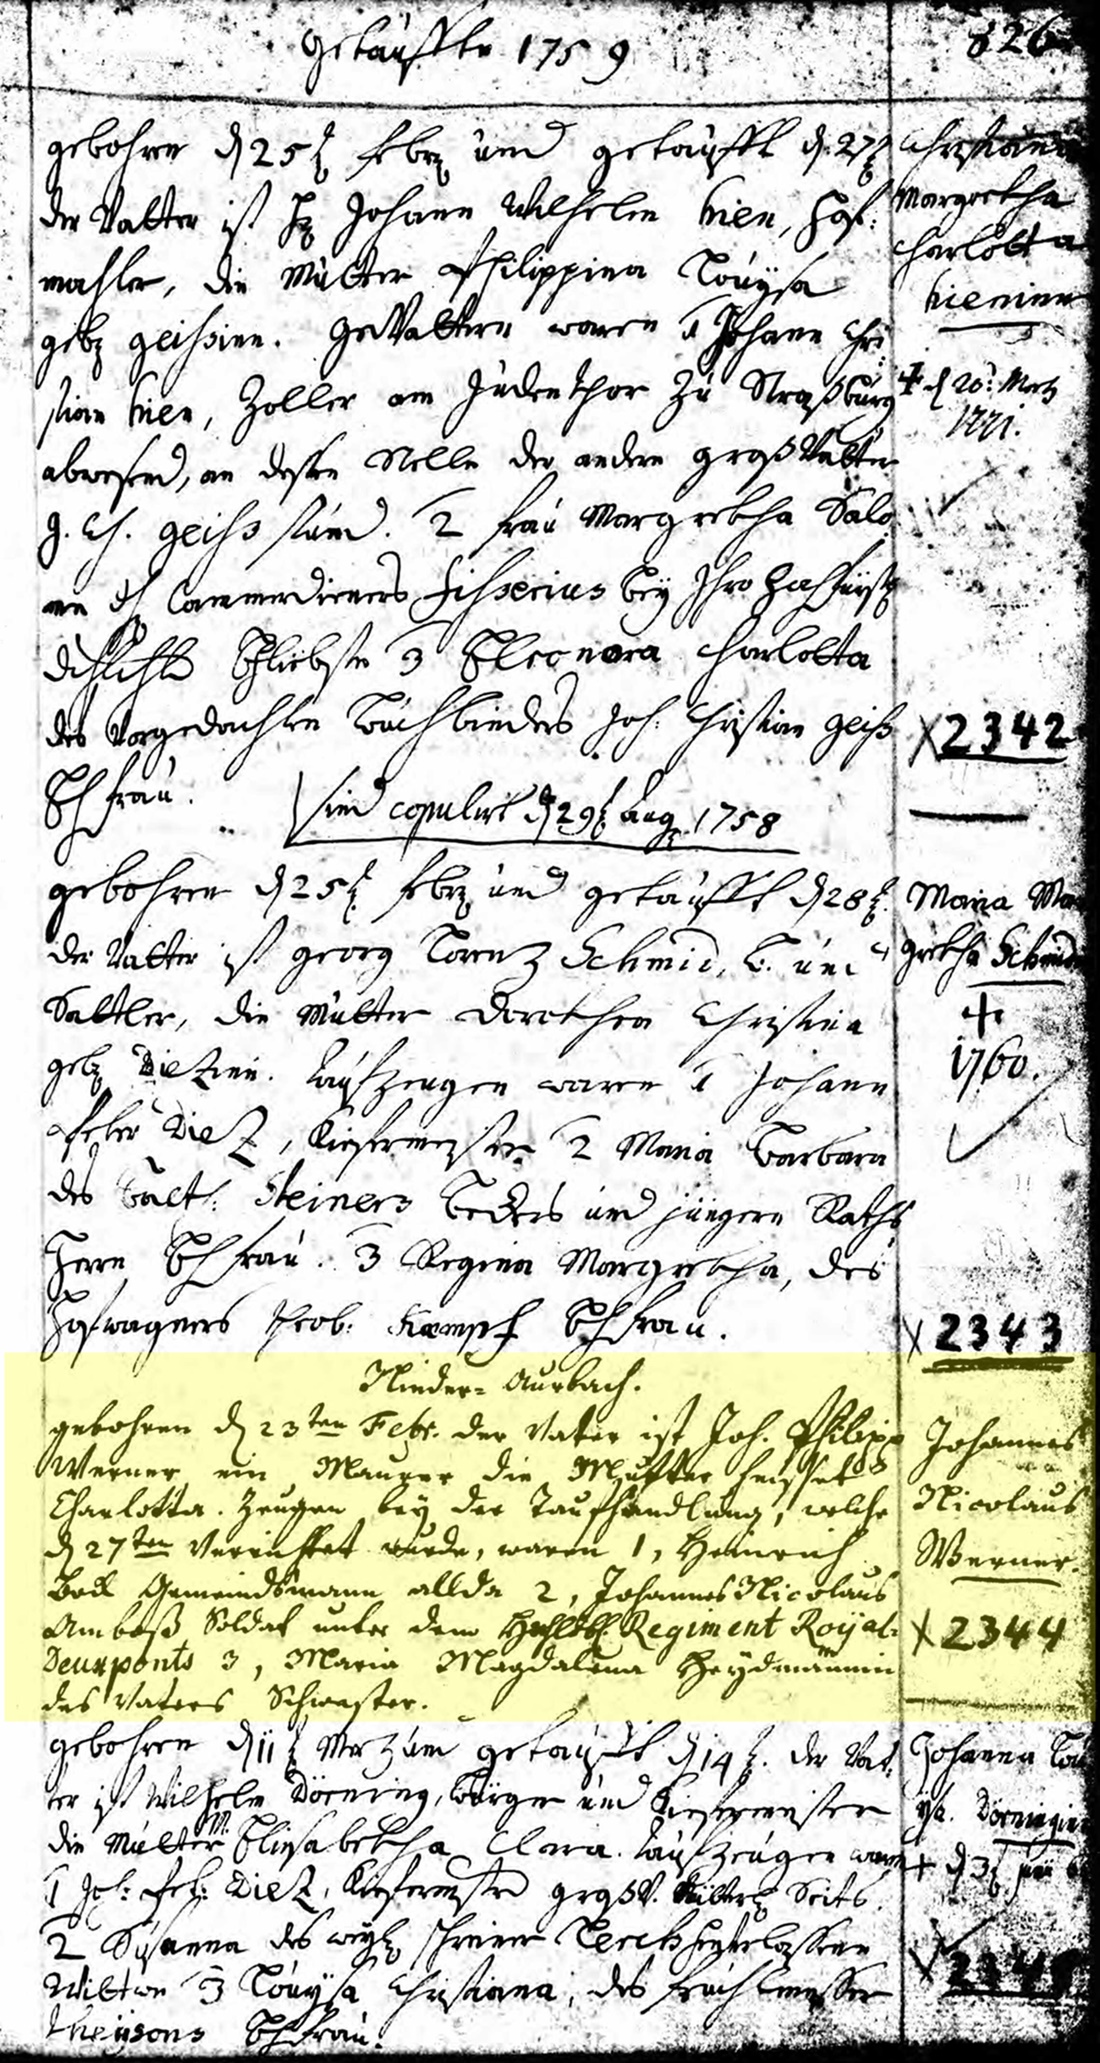 Getauffte 1759
826
gebohren d 25t Febr und getaufft d. 27t
der Vatter ist H Johann Wilhelm Hien, Hof-
mahler, die Mutter Philippina Louysa
geb geissinn. GeVattern waren 1 Johann Chri
stian Hien, Zoller am Judenthor zu Straßburg
abwesend, an dessen Stelle der andere großVatter
J. C. geiss stund. 2 Frau Margretha Salo
me H Cammerdieners bey Ihro Hochfürstl
Ehliebste 3 Eleonora Charlotta
des Vorgedachten Buchbinders Joh. Christian geiss
Ehfrau.
sind copulirt d 29t Aug 1758
Christiana
Margretha
Charlotta
Hieninn
+ d 20t Mertz
1771.
X 2342
gebohren d 25t Febr und getaufft d 28t
der Vatter ist georg Lorenz Schmid, B. und
Sattler, die Mutter Dorothea Christina
geb Dietzinn. Taufzeugen waren 1 Johann
Peter Dietz, Kiefermeister 2 Maria Barbara
des Balt: Steiners Beckers und jüngern Raths
Herrn Ehfrau. 3 Regina Margretha, des
Hofwagners Jacob: Kampf Ehfrau.
Maria Mar
gretha Schmidin
+
1760.
X 2343
Nieder-Aurbach.
gebohren d 23ten Febr. der Vater ist Joh. Philipp
Werner ein Maurer die Mutter heisset
Charlotta. Zeugen bey der Taufhandlung, welche
d 27ten Verrichtet wurde, waren 1, Heinrich
Bock Gemeindsmann allda 2, Johannes Nicolaus
Amboß Soldat unter dem Hochlöbl. Regiment Royal-
Deuxponts 3, Maria Magdalena Heydmännin
des Vaters Schwester.
Johannes
Nicolaus
Werner.
X 2344
gebohren d 11t Merz und getaufft d 14t. der Vat-
ter ist Wilhelm Dörning, Bürger und Kiefermeister
die Mutter Elisabetha Clara. Taufzeugen waren
1 Joh: Pet: Dietz, Kiefermstr großV. Mütterl Seits.
2 Susanna des weyl Schreiner hinterlassene
Wittwe 3 Louysa Christiana, des Fruchtmesser
Theysons Ehfrau.
Johanna Lou
ysa. Dörningin
X 2345